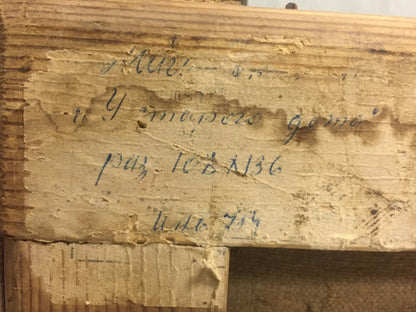 "У старого дома"
раз. 102х136
Инв 714